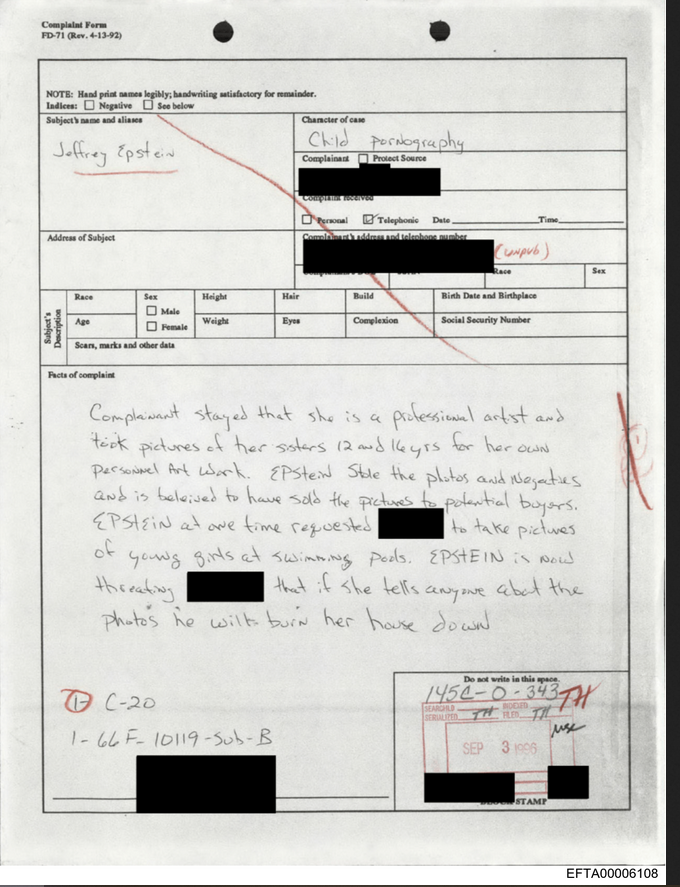 Complaint Form
FD-71 (Rev. 4-13-92)
NOTE: Hand print names legibly; handwriting satisfactory for remainder.
Indices: Negative See below
Subject's name and aliases
Jeffrey Epstein
Character of case
Child Pornography
Complainant Protect Source
Complaint received
Personal Telephonic Date Time
Address of Subject
Complainant's address and telephone number
(unpub)
Race Sex
Subject's Description
Race Sex Height Hair Build Birth Date and Birthplace
Male
Age Female Weight Eyes Complexion Social Security Number
Scars, marks and other data
Facts of complaint
Complainant stayed that she is a professional artist and
took pictures of her sisters 12 and 16 yrs for her own
personnel Art Work. EPStein Stole the photos and Negatives
and is beleived to have sold the pictures to potential buyers.
EPSTEIN at one time requested to take pictures
of young girls at swimming pools. EPSTEIN is now
threating that if she tells anyone about the
photo's he will burn her house down
1- C-20
1-66F-10119-Sub-B
Do not write in this space.
145C-0-343 TH
SEARCHED INDEXED
SERIALIZED TH FILED TH
SEP 3 1996
BLOCK STAMP
EFTA00006108